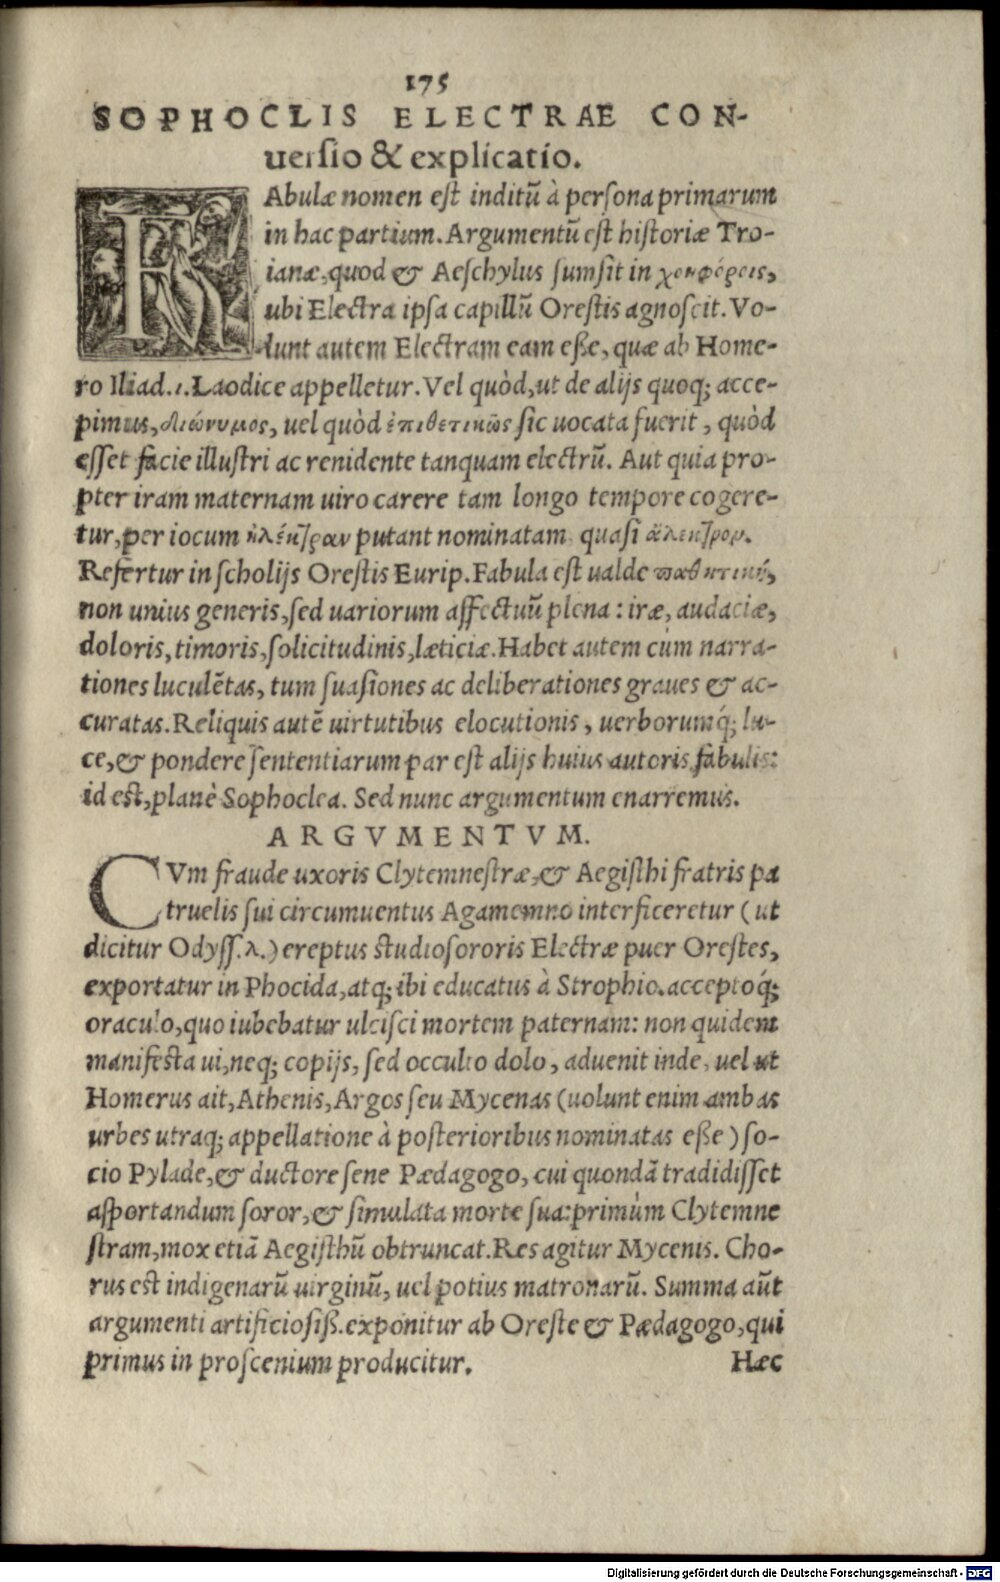 175
SOPHOCLIS ELECTRAE CON-
uersio & explicatio.
FAbulæ nomen est inditũ à persona primarum
in hac partium. Argumentũ est historiæ Tro-
ianæ, quod & Aeschylus sumsit in χοηφόροις,
ubi Electra ipsa capillũ Orestis agnoscit. Vo-
lunt autem Electram eam eße, quæ ab Home-
ro Iliad.ι. Laodice appelletur. Vel quòd, ut de alijs quoq; acce-
pimus, διώνυμος, uel quòd ἐπιθετικῶς sic uocata fuerit, quòd
esset facie illustri ac renidente tanquam electrũ. Aut quia pro-
pter iram maternam uiro carere tam longo tempore cogere-
tur, per iocum ἠλέκτραν putant nominatam, quasi ἄλεκτρον.
Refertur in scholijs Orestis Eurip. Fabula est ualde παθητική,
non unius generis, sed uariorum affectuũ plena: iræ, audaciæ,
doloris, timoris, solicitudinis, læticiæ. Habet autem cùm narra-
tiones luculẽtas, tum suasiones ac deliberationes graues & ac-
curatas. Reliquis autẽ uirtutibus elocutionis, uerborumq́; lu-
ce, & pondere sententiarum par est alijs huius autoris fabulis:
id est, planè Sophoclea. Sed nunc argumentum enarremus.
ARGVMENTVM.
CVm fraude uxoris Clytemnestræ, & Aegisthi fratris pa
truelis sui circumuentus Agamemno interficeretur (ut
dicitur Odyss.λ.) ereptus studio sororis Electræ puer Orestes,
exportatur in Phocida, atq; ibi educatus à Strophio. acceptoq́;
oraculo, quo iubebatur ulcisci mortem paternam: non quidem
manifesta ui, neq; copijs, sed occulto dolo, aduenit inde, uel ut
Homerus ait, Athenis, Argos seu Mycenas (uolunt enim ambas
urbes utraq; appellatione à posterioribus nominatas eße) so-
cio Pylade, & ductore sene Pædagogo, cui quondã tradidisset
asportandum soror, & simulata morte sua: primùm Clytemne
stram, mox etiã Aegisthũ obtruncat. Res agitur Mycenis. Cho-
rus est indigenarũ uirginũ, uel potius matronarũ. Summa aũt
argumenti artificiosiß. exponitur ab Oreste & Pædagogo, qui
primus in proscenium producitur. Hæc
Digitalisierung gefördert durch die Deutsche Forschungsgemeinschaft - DFG